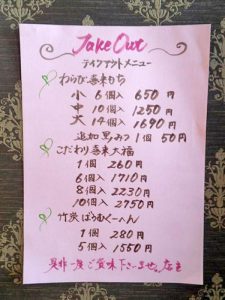 Take Out
テイクアウトメニュー
わらび喜来もち
小 6個入 650円
中 10個入 1250円
大 14個入 1690円
追加黒みつ 1個 50円
こだわり喜来大福
1個 260円
6個入 1710円
8個入 2230円
10個入 2750円
竹炭ばうむくーへん
1個 280円
5個入 1550円
是非一度ご賞味下さいませ。店主